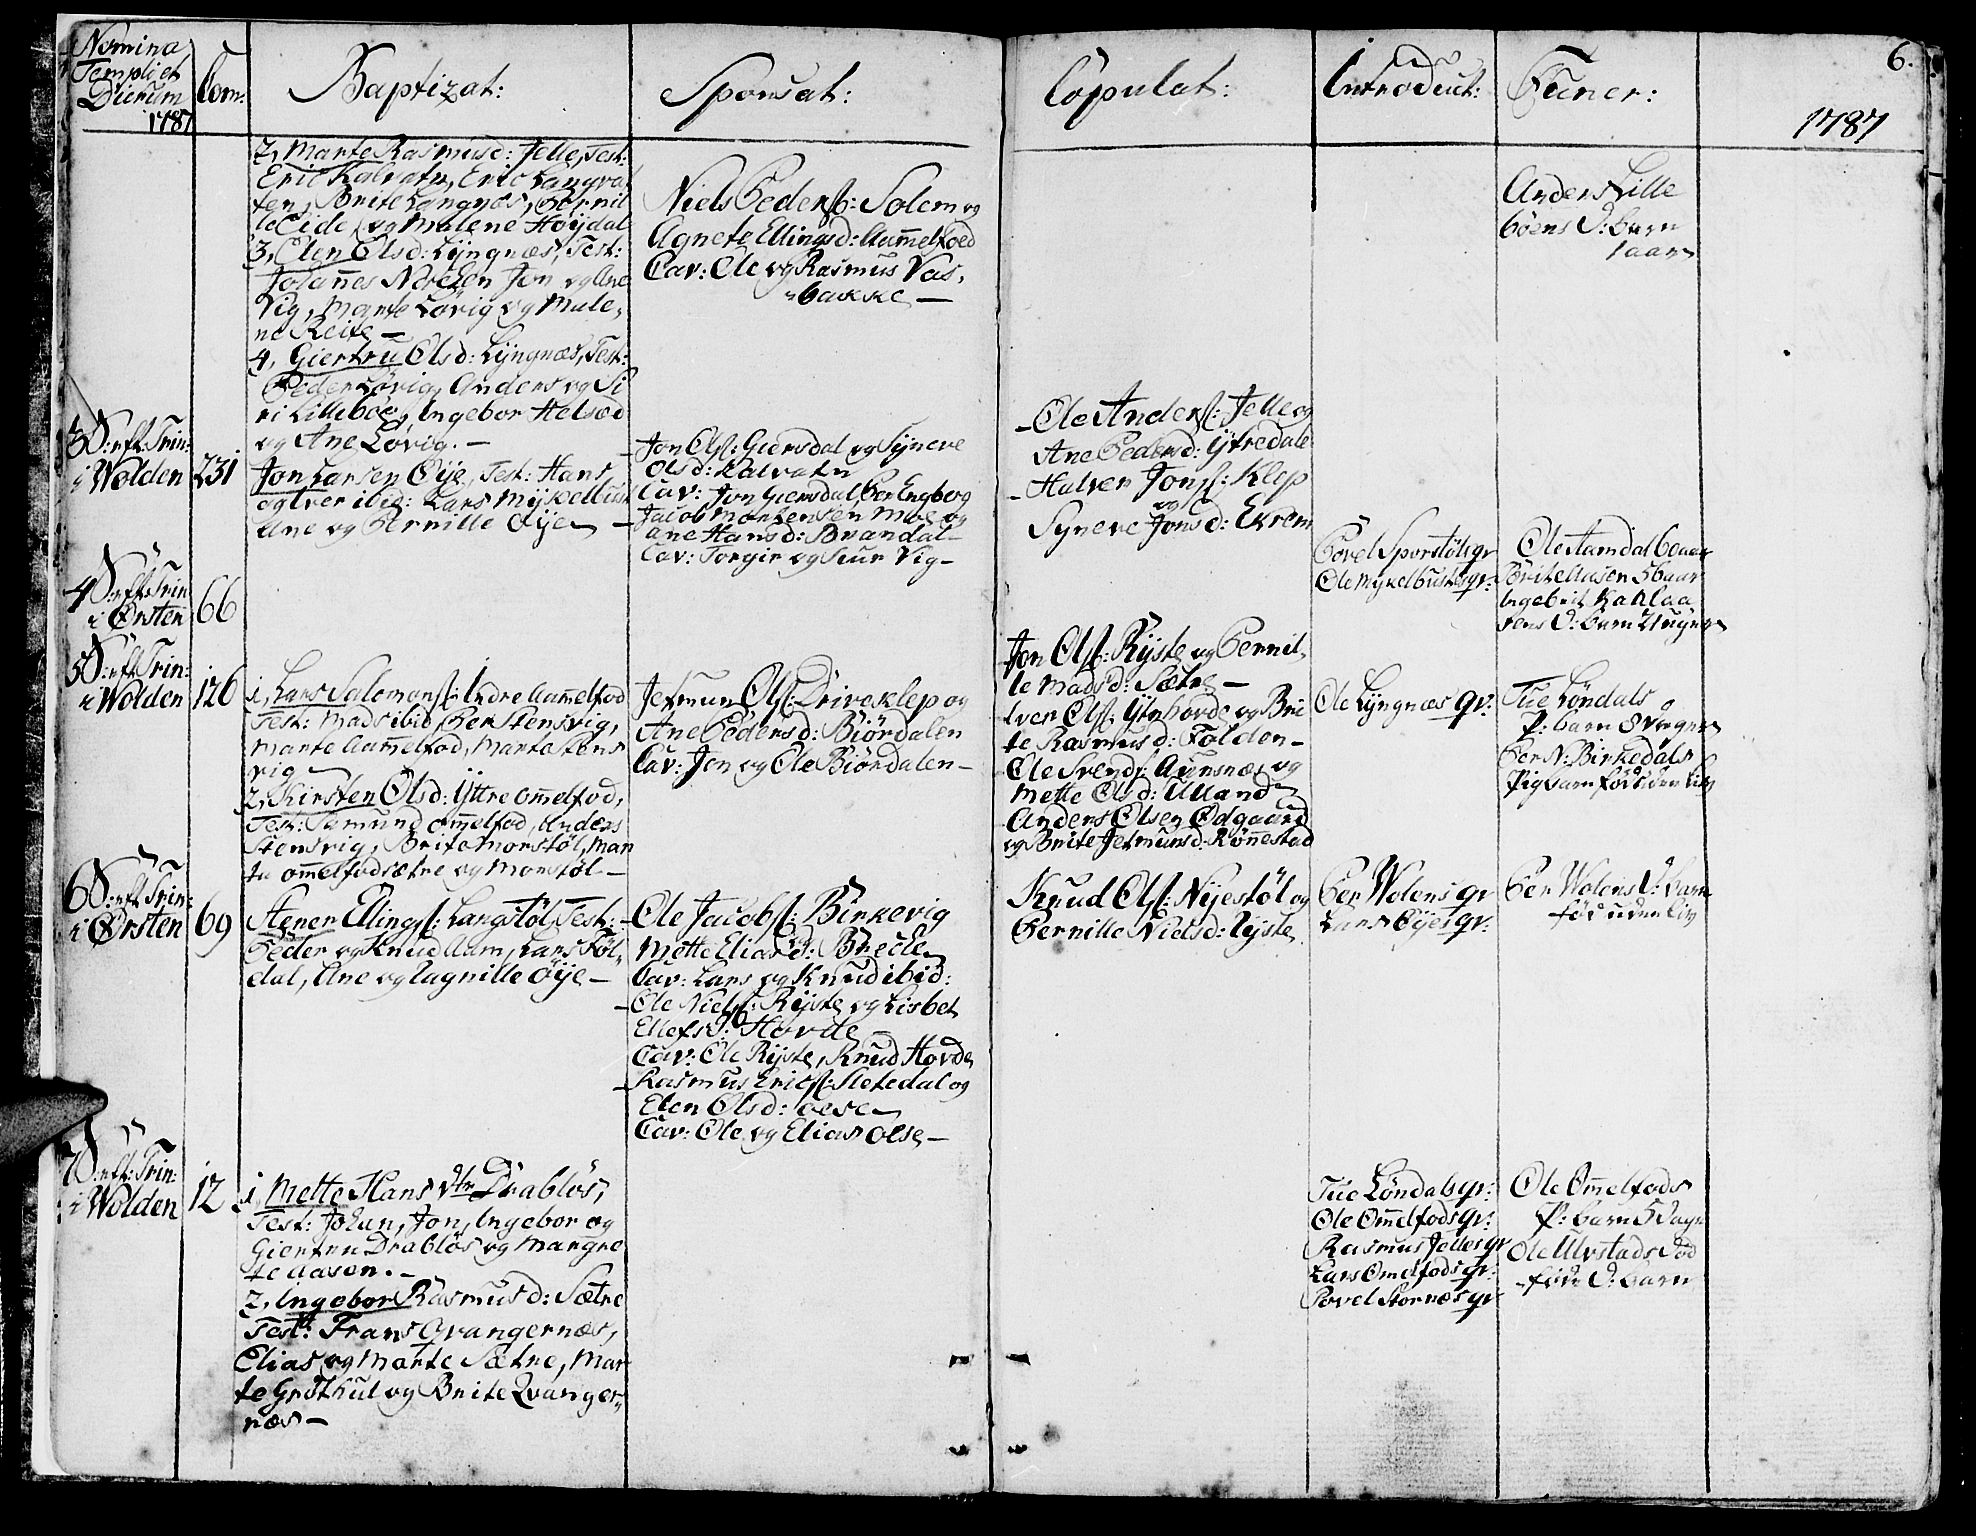 Nomina
Templi et
Dierum
1787
Com:
Baptizat:
Sponsat:
Copulat:
Introduct:
Funer:
6.
1787
2, Marte Rasmusd: Jelle, Test:
Eric Kalvatn, Eric Langva
ten, Brite Langnæs, Pernil
le Eide og Malene Höydal
3, Elen Olsd: Lÿngnæs, Test:
Johannes Jon og Ane
Vig, Marte Lövig og Male,
ne Reite –
4, Giertru Olsd: Lÿngnæs, Test:
Peder Lövig, Anders og Si
ri Lilleböe, Ingebor Helsæd
og Ane Lövig. –
Niels Peders: Solem og
Agnete Ellingsd: Aamelfoed
Cav: Ole og Rasmus Vas,
bakke –
Anders Lille
böens D: barn
1 aar
3 D: eft: Trin:
i Wolden
231
Jon Larsen Öije, Test: Hans
og Iver ibid: Lars Myckelbust
Ane og Pernille Öije
– Jon Ols: Giersdal og Syneve
Olsd: Kalvatn
Cav: Jon Giersdal, Per Engberg
– Jacob Mortensen Moe og
Ane Hansd: Brandal
Cav: Torgir og Siur Vig –
– Ole Anders: Jelle og
Ane Pedersd: Ytredale
– Halver Jons: Klep
og
Syneve Jonsd: Ekrem
4 D: eft: Trin
i Örsten
66
Povel Sporstöls qv
Ole Mykelbusts qv:
Ole Aamdal 60 aar
Brite Aasen 56 aar
Ingebrit Kahlaa
sens D: barn 2 uger
5 D: eft: Trin:
i Wolden
126
1, Lars Salomons: Indre Aamelfod
Test: Mads ibid, Per Stensvig,
Marte Aamelfod, Marte Stens
vig –
2, Kirsten Olsd: Yttre Ommelfod,
Test: Samund Ommelfod, Anders
Stensvig, Brite Morstöl, Mar
te Ommelfodsætre og Morstöl –
Jetmun Ols: Driveklep og
Ane Pedersd: Biördalen
Cav: Jon og Ole Biördalen –
Jon Ols: Rÿste og Pernil,
le Madsd: Sætre –
Iver Ols: Ytrehovde og Bri
te Rasmusd: Folden –
Ole Svends: Aursnæs og
Mette Olsd: Ulland
Anders Olsen Ödgaard
og Brite Jetmunsd: Rönnestad
Ole Lÿngnæs qv:
Tue Löndals
P: barn 8 Dager
Per N: Birkedals
Pigebarn föd uden liv
6 D: eft: Trin:
i Örsten
69
Stener Ellings: Langstöl, Test:
Peder og Knud Aam, Lars Föl,
dal, Ane og Ragnille Öije –
– Ole Jacobs: Birkevig
og
Mette Eliasd: Brecke
Cav: Lars og Knud ibid:
– Ole Niels: Rÿste og Lisbet
Ellefsd: Hovde
Cav: Ole Rÿste, Knud Hovde
– Rasmus Erics: Sletedal og
Elen Olsd: Ose
Cav: Ole og Elias Ose –
Knud Ols: Nÿestöl og
Pernille Nielsd: Rÿste
Per Wolens qv
Lars Öijes qv:
Per Wolens D: barn
föd uden liv
7 D: eft: Trin:
i Wolden
12
1, Mette Hans Dtr Drablös,
Test: Johan, Jon, Ingebor og
Giertru Drablös og Margre
te Aasen. –
2, Ingebor Rasmusd: Sætre
Test: Frans Qvangernæs,
Elias og Marte Sætre, Mar
te Grothul og Brite Qvanger,
næs –
Tue Löndals qv:
Ole Ommelfods qv:
Rasmus Jelles qv
Lars Omelfods qv:
Povel Stornæs qv
Ole Omelfods
P: barn 5 Dage
Ole Ulvstads Död
föde D: barn